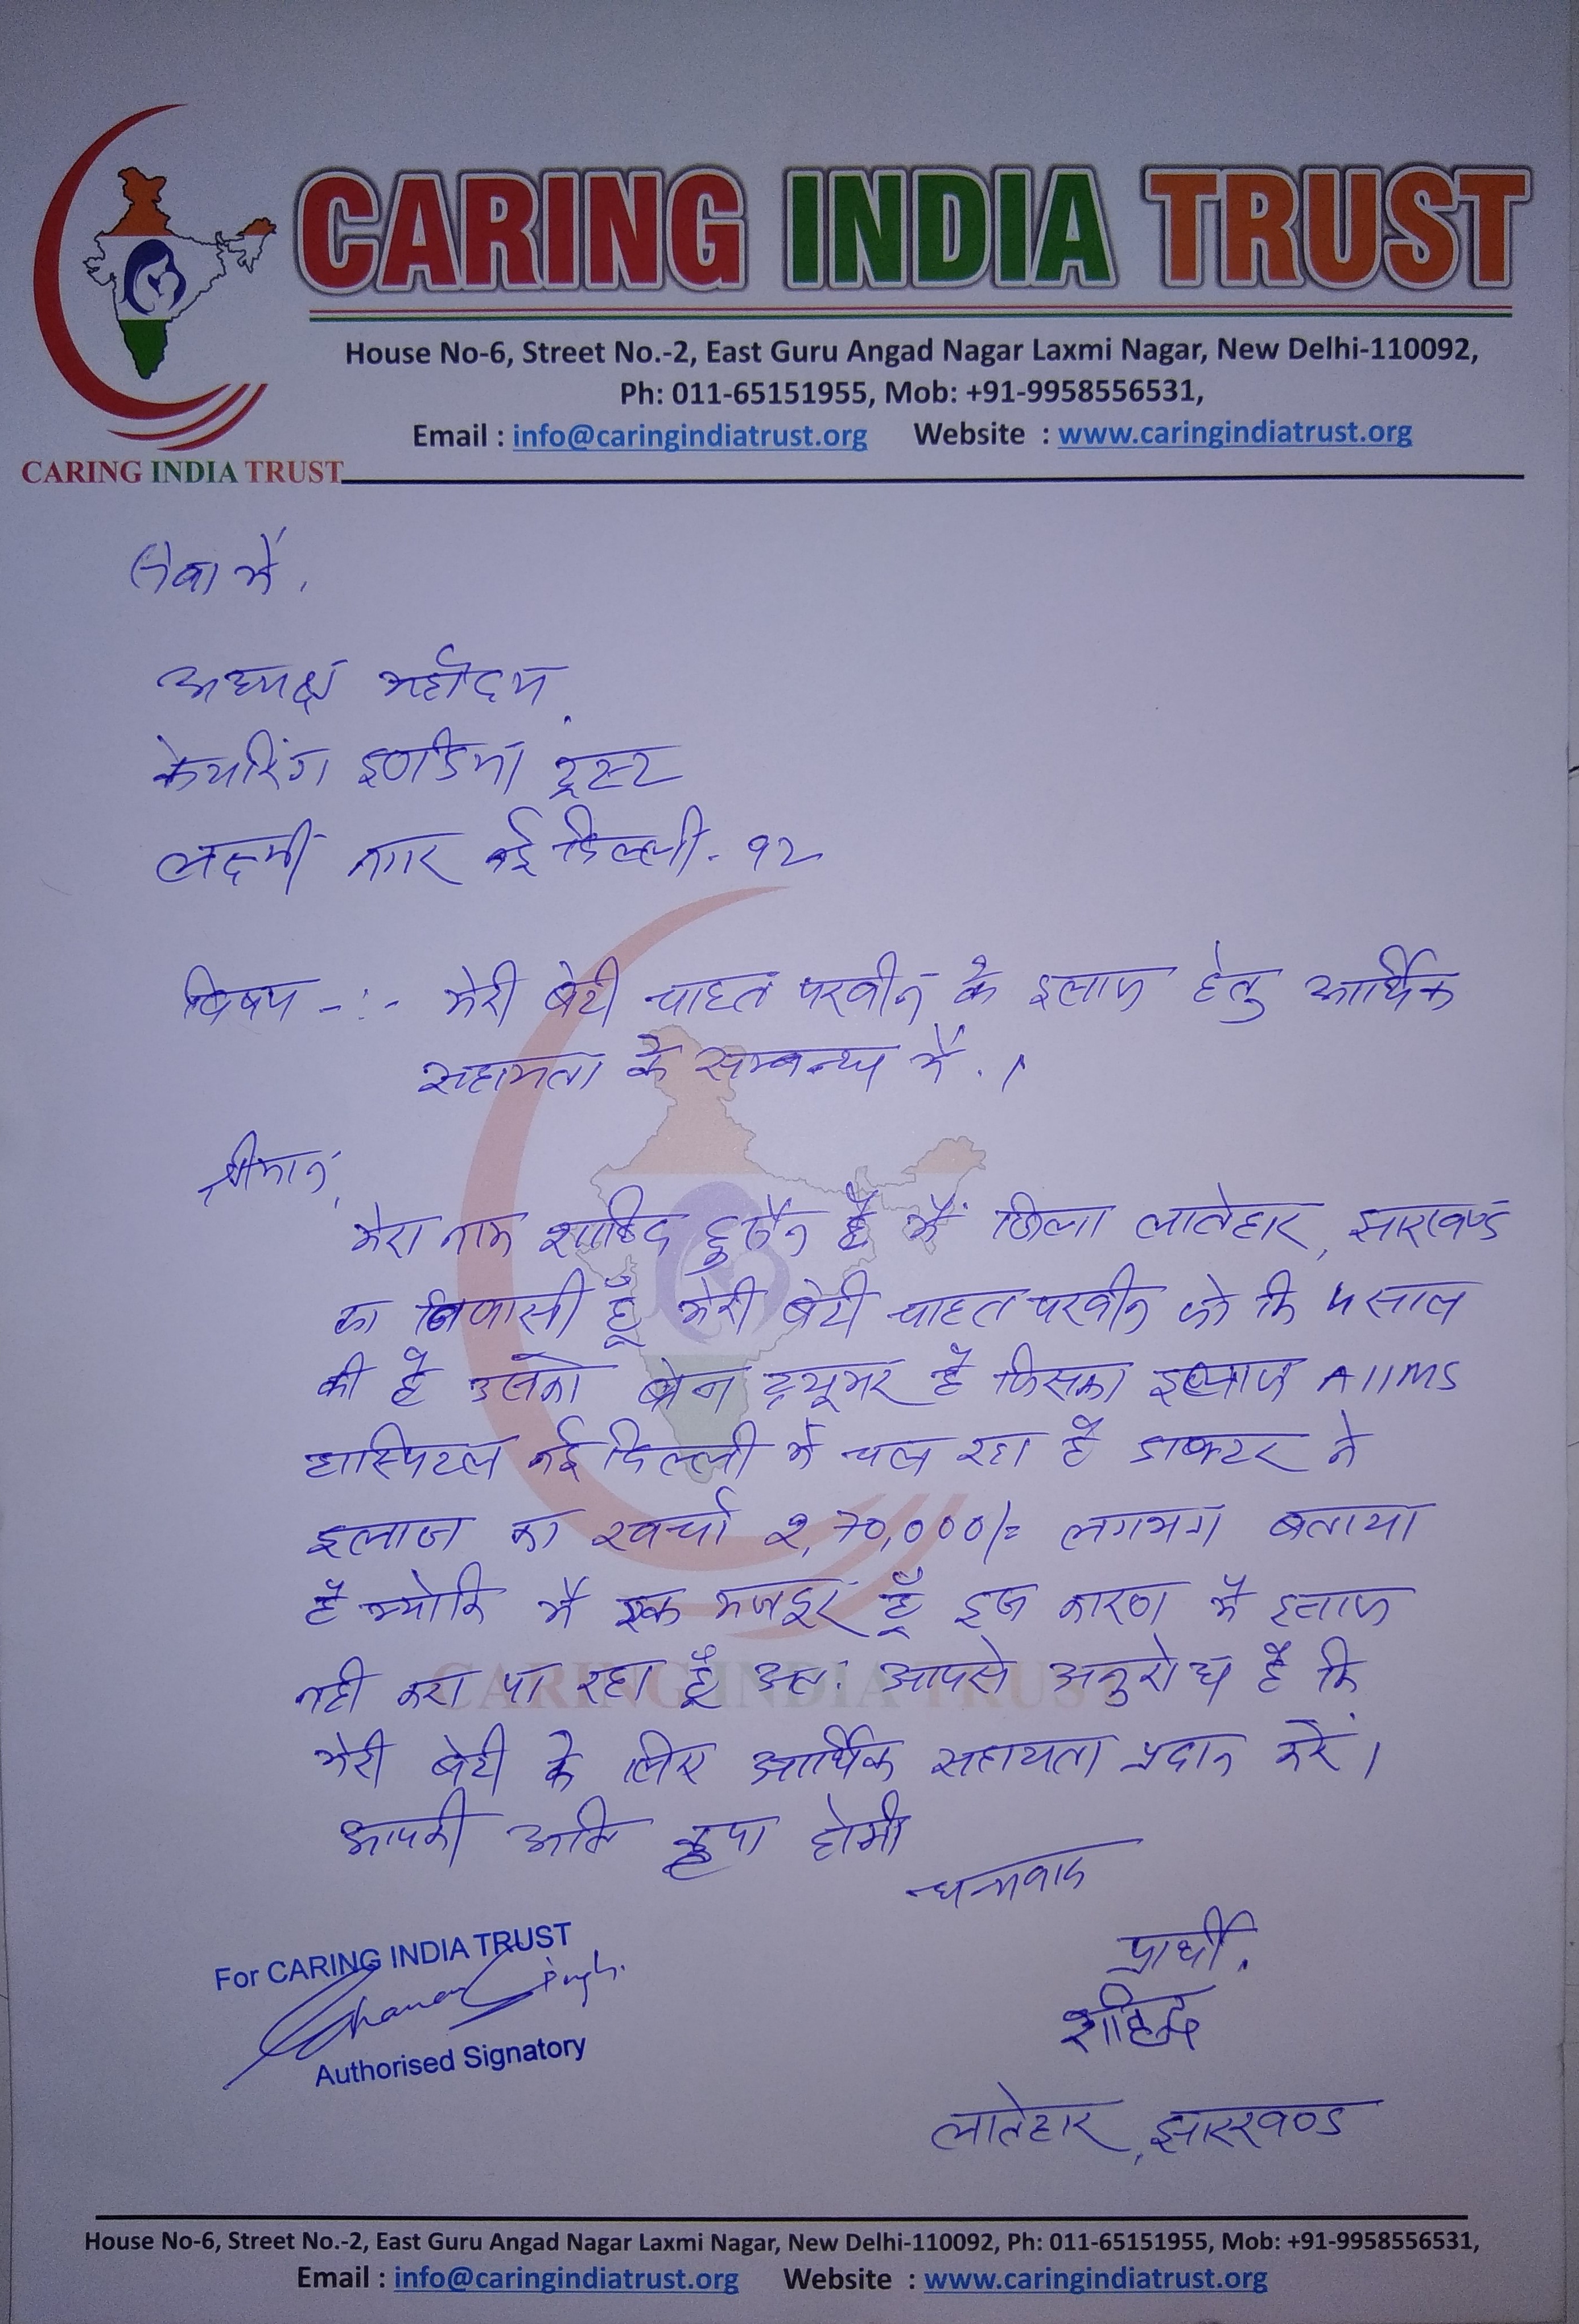 CARING INDIA TRUST
House No-6, Street No.-2, East Guru Angad Nagar Laxmi Nagar, New Delhi-110092,
Ph: 011-65151955, Mob: +91-9958556531,
Email : info@caringindiatrust.org Website : www.caringindiatrust.org
CARING INDIA TRUST
सेवा में,
अध्यक्ष महोदय,
केयरिंग इण्डिया ट्रस्ट
लक्ष्मी नगर नई दिल्ली - 92
विषय -:- मेरी बेटी चाहत परवीन के इलाज हेतु आर्थिक
सहायता के सम्बन्ध में.।
श्रीमान,
मेरा नाम शाहिद हुसैन है मैं जिला लातेहार, झारखण्ड
का निवासी हूँ मेरी बेटी चाहत परवीन जो कि 4 साल
की है उसको ब्रेन ट्यूमर है जिसका इलाज AIIMS
हास्पिटल नई दिल्ली में चल रहा है डाक्टर ने
इलाज का खर्चा 2,70,000/= लगभग बताया
है क्योकि मै एक मजदूर हूँ इस कारण मै इलाज
नही करा पा रहा हूँ अतः आपसे अनुरोध है कि
मेरी बेटी के लिए आर्थिक सहायता प्रदान करें।
आपकी अति कृपा होगी
धन्यवाद
प्रार्थी.
शाहिद
लातेहार, झारखण्ड
For CARING INDIA TRUST
Singh
Authorised Signatory
CARING INDIA TRUST
House No-6, Street No.-2, East Guru Angad Nagar Laxmi Nagar, New Delhi-110092, Ph: 011-65151955, Mob: +91-9958556531,
Email : info@caringindiatrust.org Website : www.caringindiatrust.org